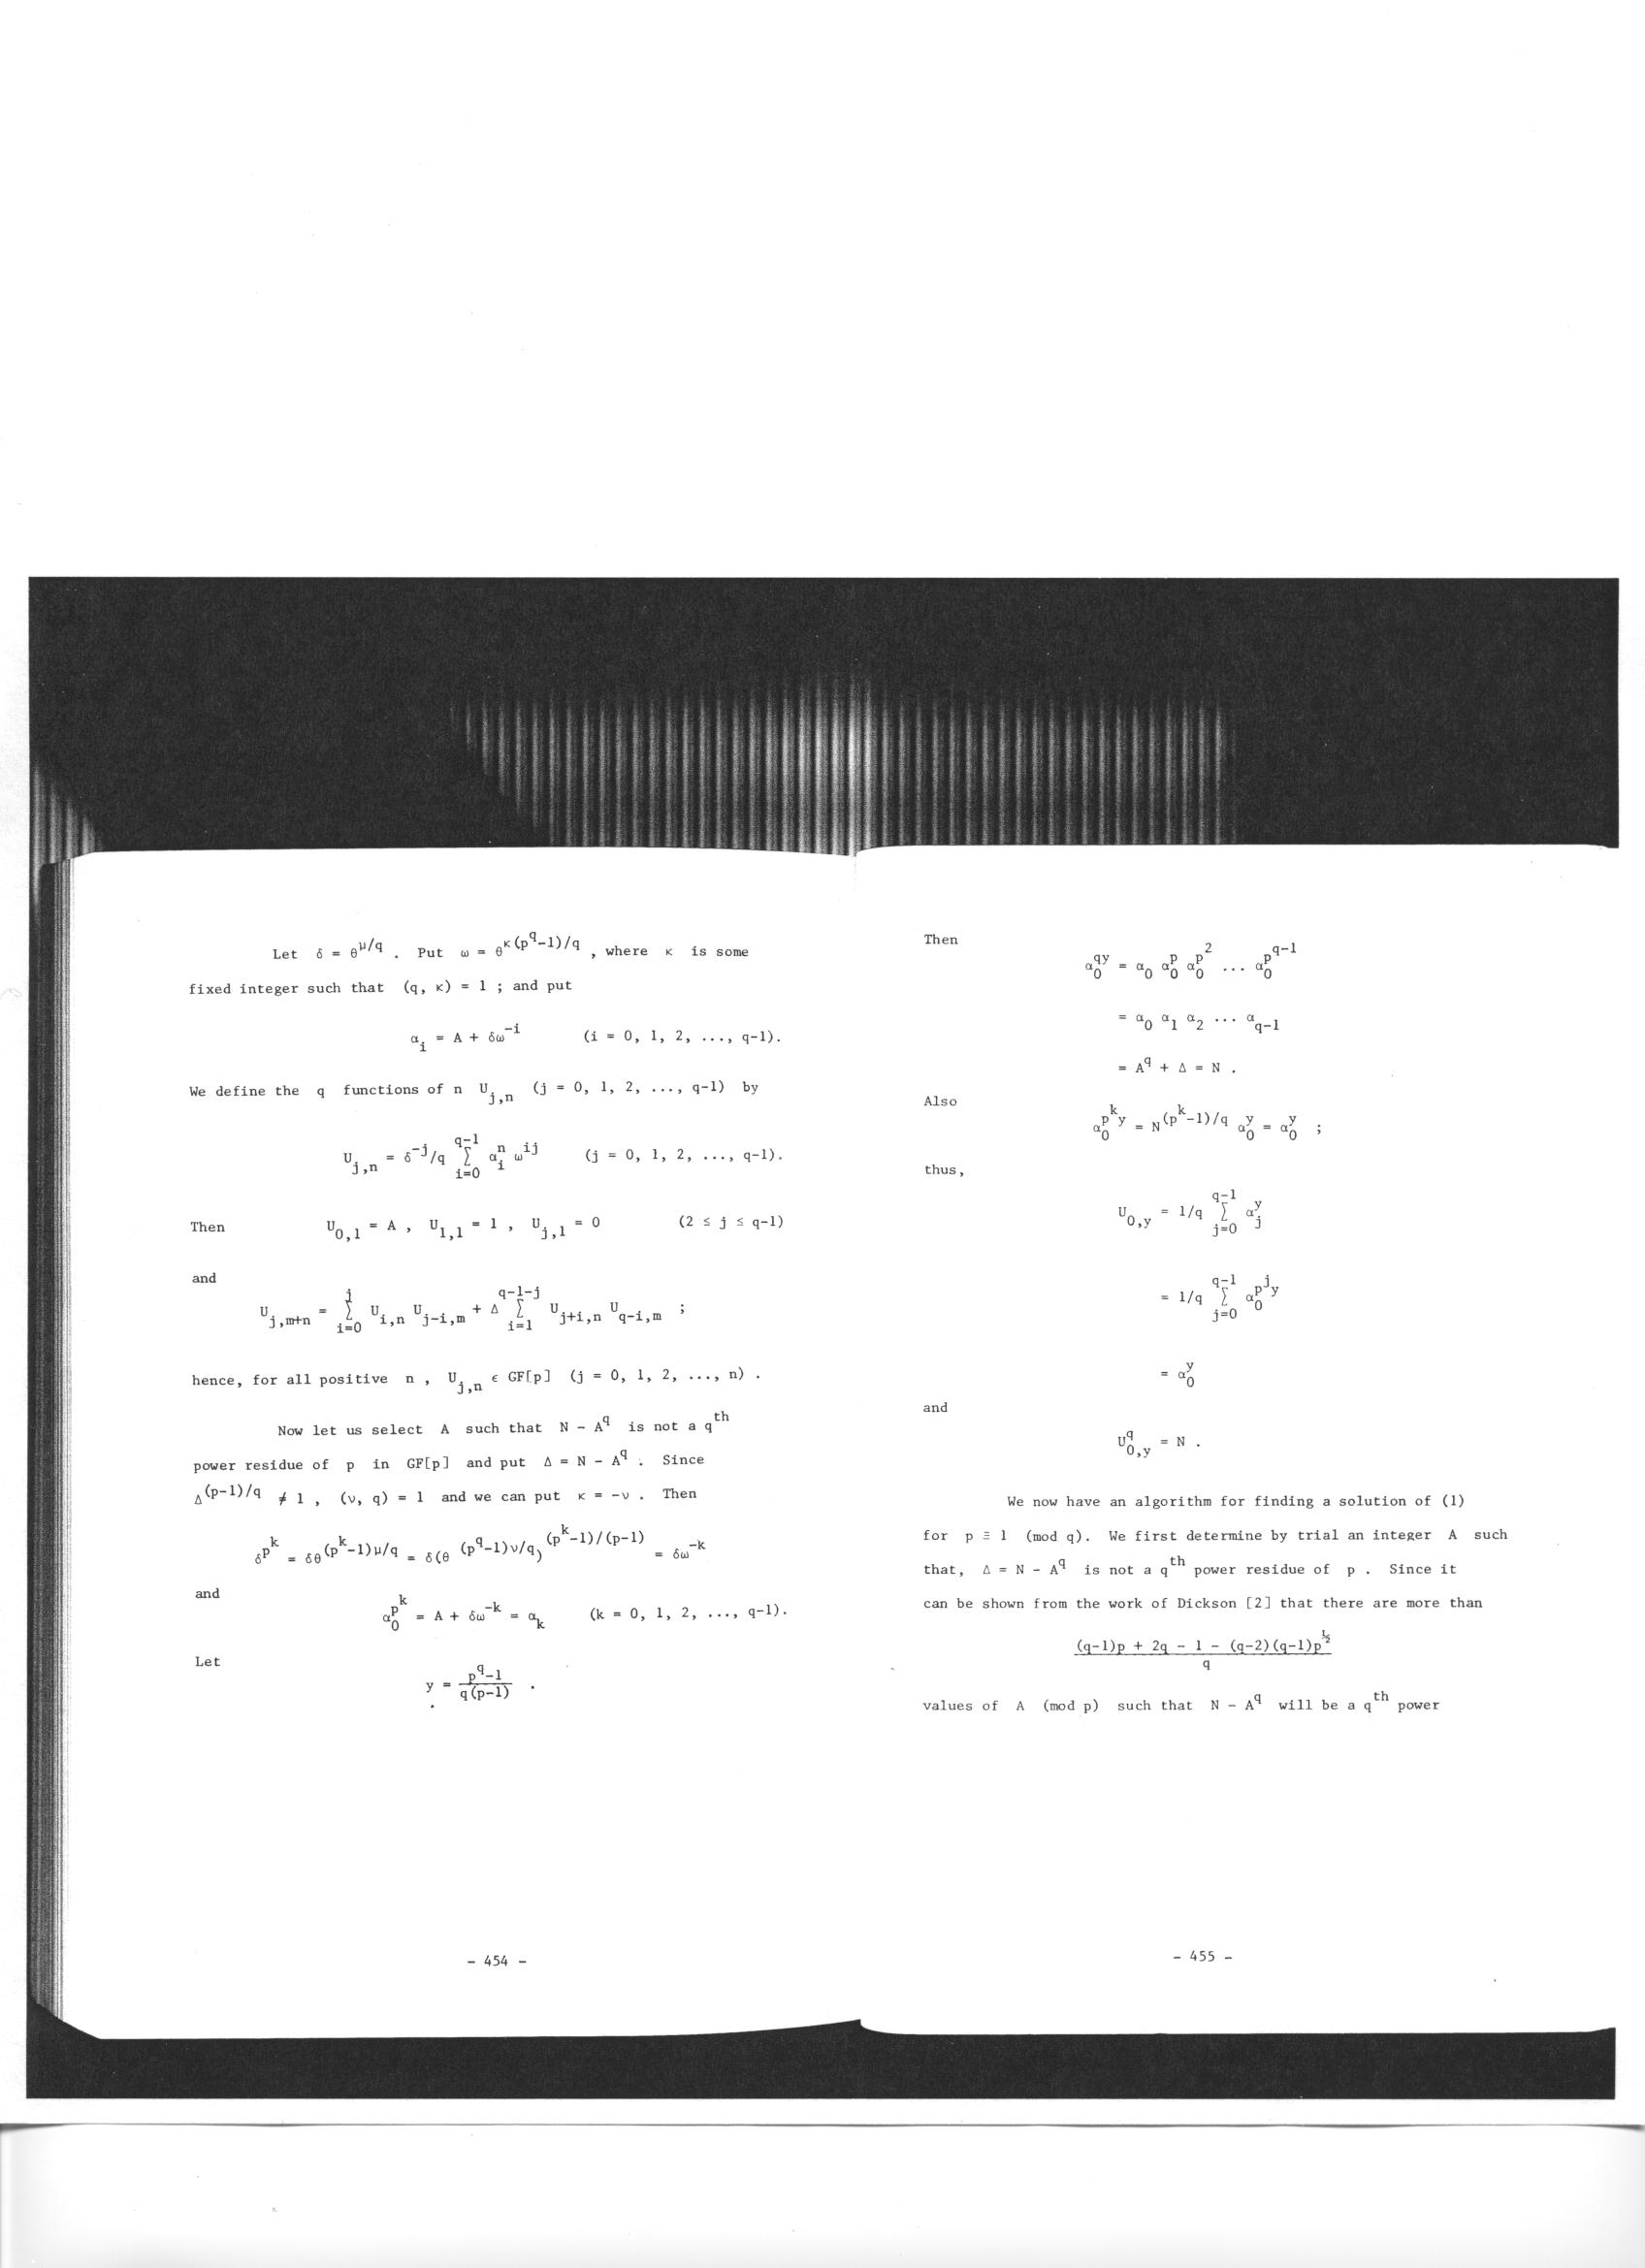 Let δ = θ^{μ/q} . Put ω = θ^{κ(p^q-1)/q} , where κ is some
fixed integer such that (q, κ) = 1 ; and put
α_i = A + δω^{-i} (i = 0, 1, 2, ..., q-1).
We define the q functions of n U_{j,n} (j = 0, 1, 2, ..., q-1) by
U_{j,n} = δ^{-j}/q Σ_{i=0}^{q-1} α_i^n ω^{ij} (j = 0, 1, 2, ..., q-1).
Then U_{0,1} = A , U_{1,1} = 1 , U_{j,1} = 0 (2 ≤ j ≤ q-1)
and
U_{j,m+n} = Σ_{i=0}^{j} U_{i,n} U_{j-i,m} + Δ Σ_{i=1}^{q-1-j} U_{j+i,n} U_{q-i,m} ;
hence, for all positive n , U_{j,n} ϵ GF[p] (j = 0, 1, 2, ..., n) .
Now let us select A such that N - A^q is not a q^{th}
power residue of p in GF[p] and put Δ = N - A^q . Since
Δ^{(p-1)/q} ≠ 1 , (ν, q) = 1 and we can put κ = -ν . Then
δ^{p^k} = δθ^{(p^k-1)μ/q} = δ(θ^{(p^q-1)ν/q})^{(p^k-1)/(p-1)} = δω^{-k}
and
α_0^{p^k} = A + δω^{-k} = α_k (k = 0, 1, 2, ..., q-1).
Let
y = \frac{p^q-1}{q(p-1)} .
- 454 -
Then
α_0^{qy} = α_0 α_0^p α_0^{p^2} ... α_0^{p^{q-1}}
= α_0 α_1 α_2 ... α_{q-1}
= A^q + Δ = N .
Also
α_0^{p^k y} = N^{(p^k-1)/q} α_0^y = α_0^y ;
thus,
U_{0,y} = 1/q Σ_{j=0}^{q-1} α_j^y
= 1/q Σ_{j=0}^{q-1} α_0^{p^j y}
= α_0^y
and
U_{0,y}^q = N .
We now have an algorithm for finding a solution of (1)
for p ≡ 1 (mod q). We first determine by trial an integer A such
that, Δ = N - A^q is not a q^{th} power residue of p . Since it
can be shown from the work of Dickson [2] that there are more than
\frac{(q-1)p + 2q - 1 - (q-2)(q-1)p^{½}}{q}
values of A (mod p) such that N - A^q will be a q^{th} power
- 455 -